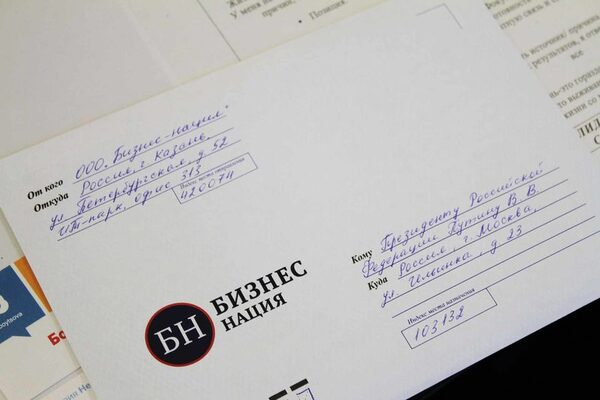 От кого ООО „Бизнес-нация"
Откуда Россия, г. Казань
ул Петербургская, д 52
ИТ-парк, офис 313
Индекс места отправления
420074
Кому Президенту Российской
Федерации Путину В. В.
Куда Россия, г. Москва,
ул Ильинка, д 23
Индекс места назначения
103132
БН
БИЗНЕС
НАЦИЯ
У меня
причин,
Позиция.